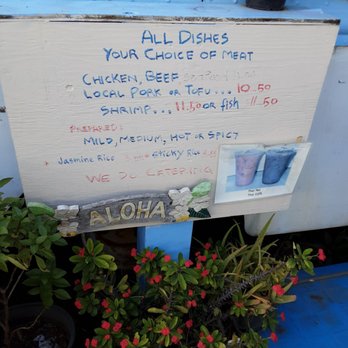 ALL DISHES
YOUR CHOICE OF MEAT
CHICKEN, BEEF
LOCAL PORK OR TOFU... 10.50
SHRIMP... 11.50 or fish $11.50
PREPARED:
MILD, MEDIUM, HOT OR SPICY
Jasmine Rice Sticky Rice
WE DO CATERING
ALOHA